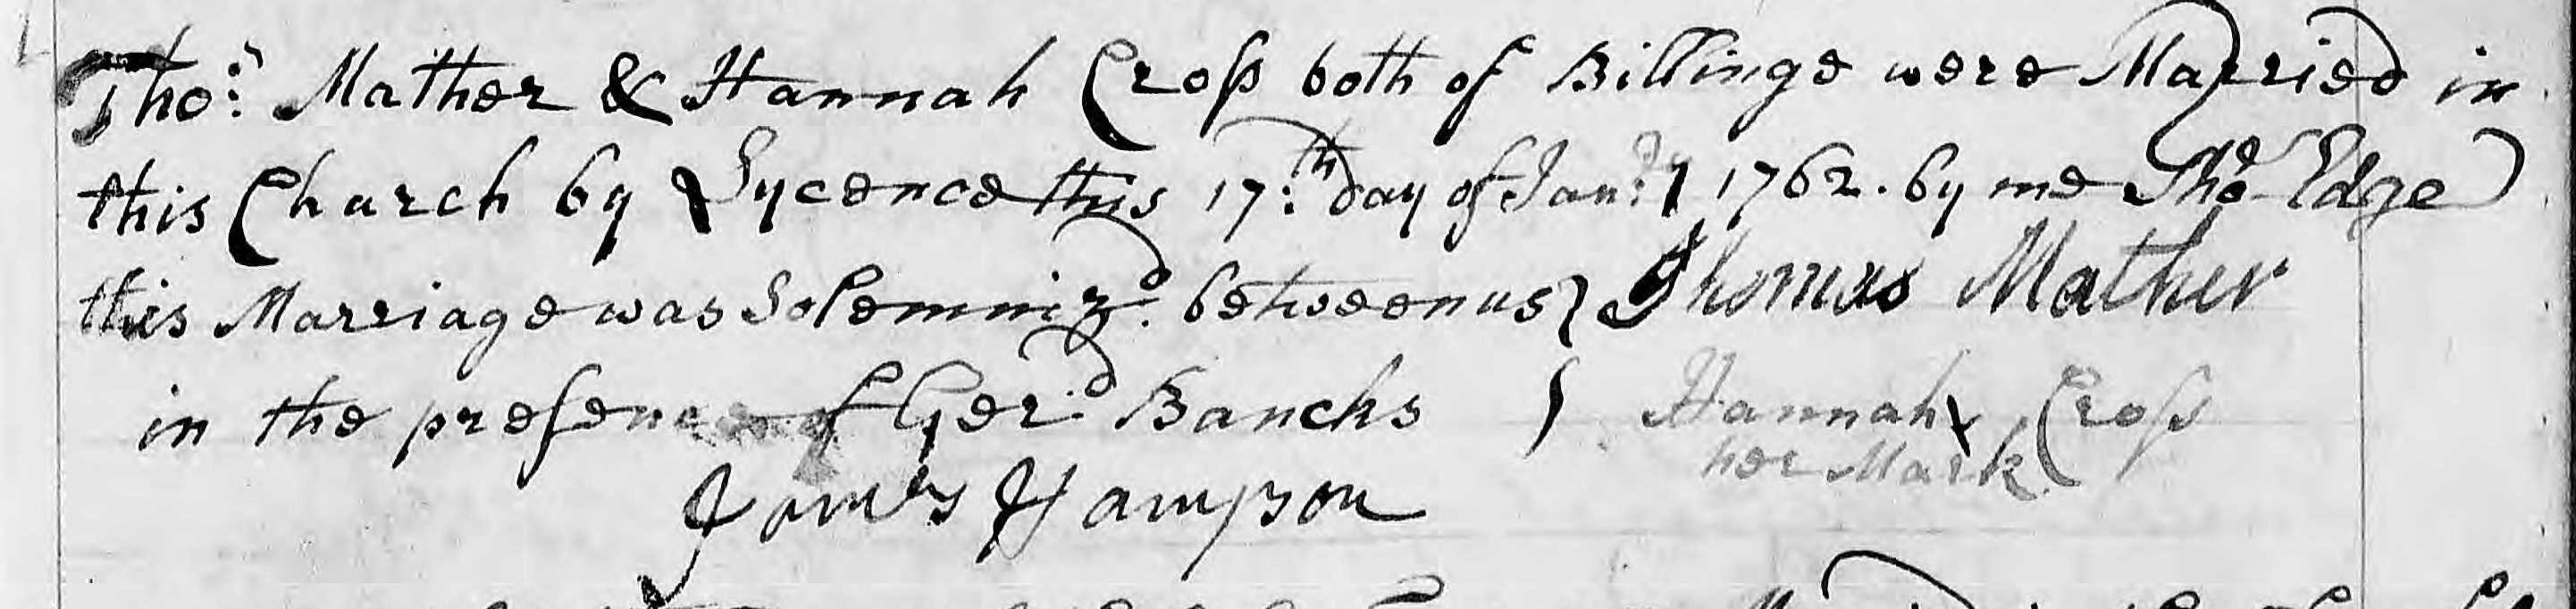 Tho.s Mather & Hannah Croſs both of Billinge were Married in
this Church by Lycence this 17.th day of Jan.ry 1762. by me Tho.s Edge
this Marriage was Solemniz.d between us } Thomas Mather
in the preſence of Ger.d Bancks } Hannah x Croſs
her Mark
James Hampson